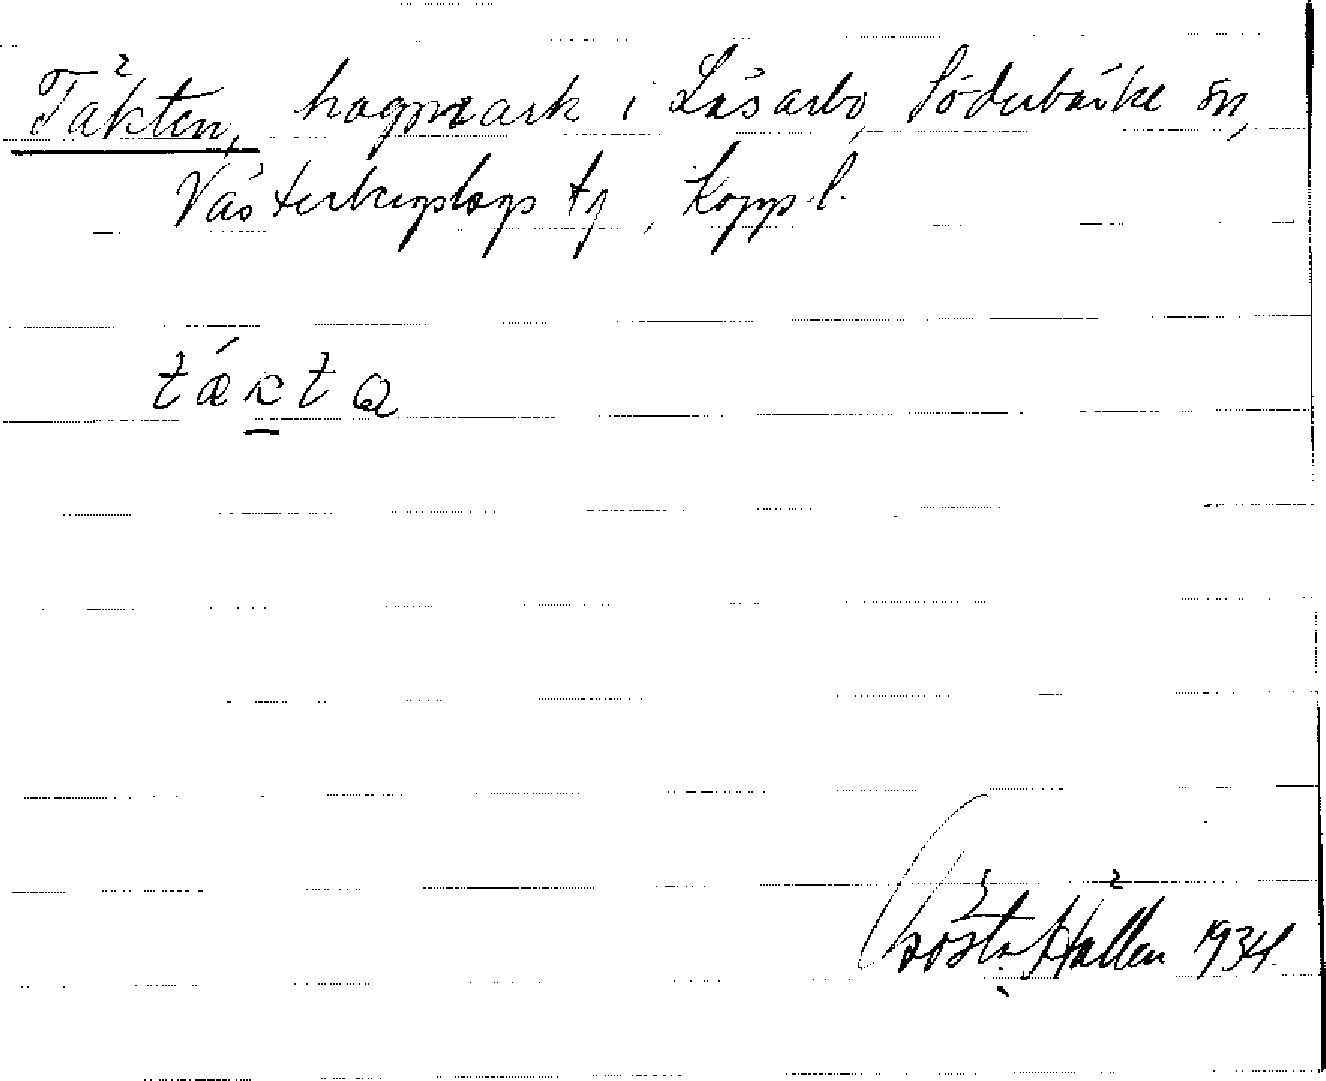 Täkten, hagmark i Läsarbo, Söderbärke sn,
Västerbergslags tg, Kopp. l.
tækta
Gösta Hallén 1934